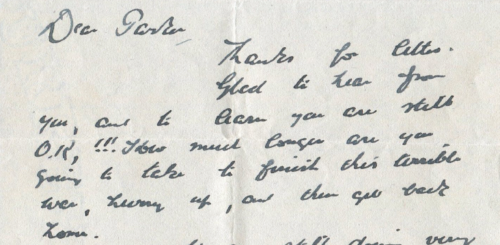 Dear Parker
Thanks for letter.
Glad to hear from
you, and to learn you are still
O.K, !!! How much longer are you
going to take to finish this terrible
war, hurry up, and then get back
home.
still doing very